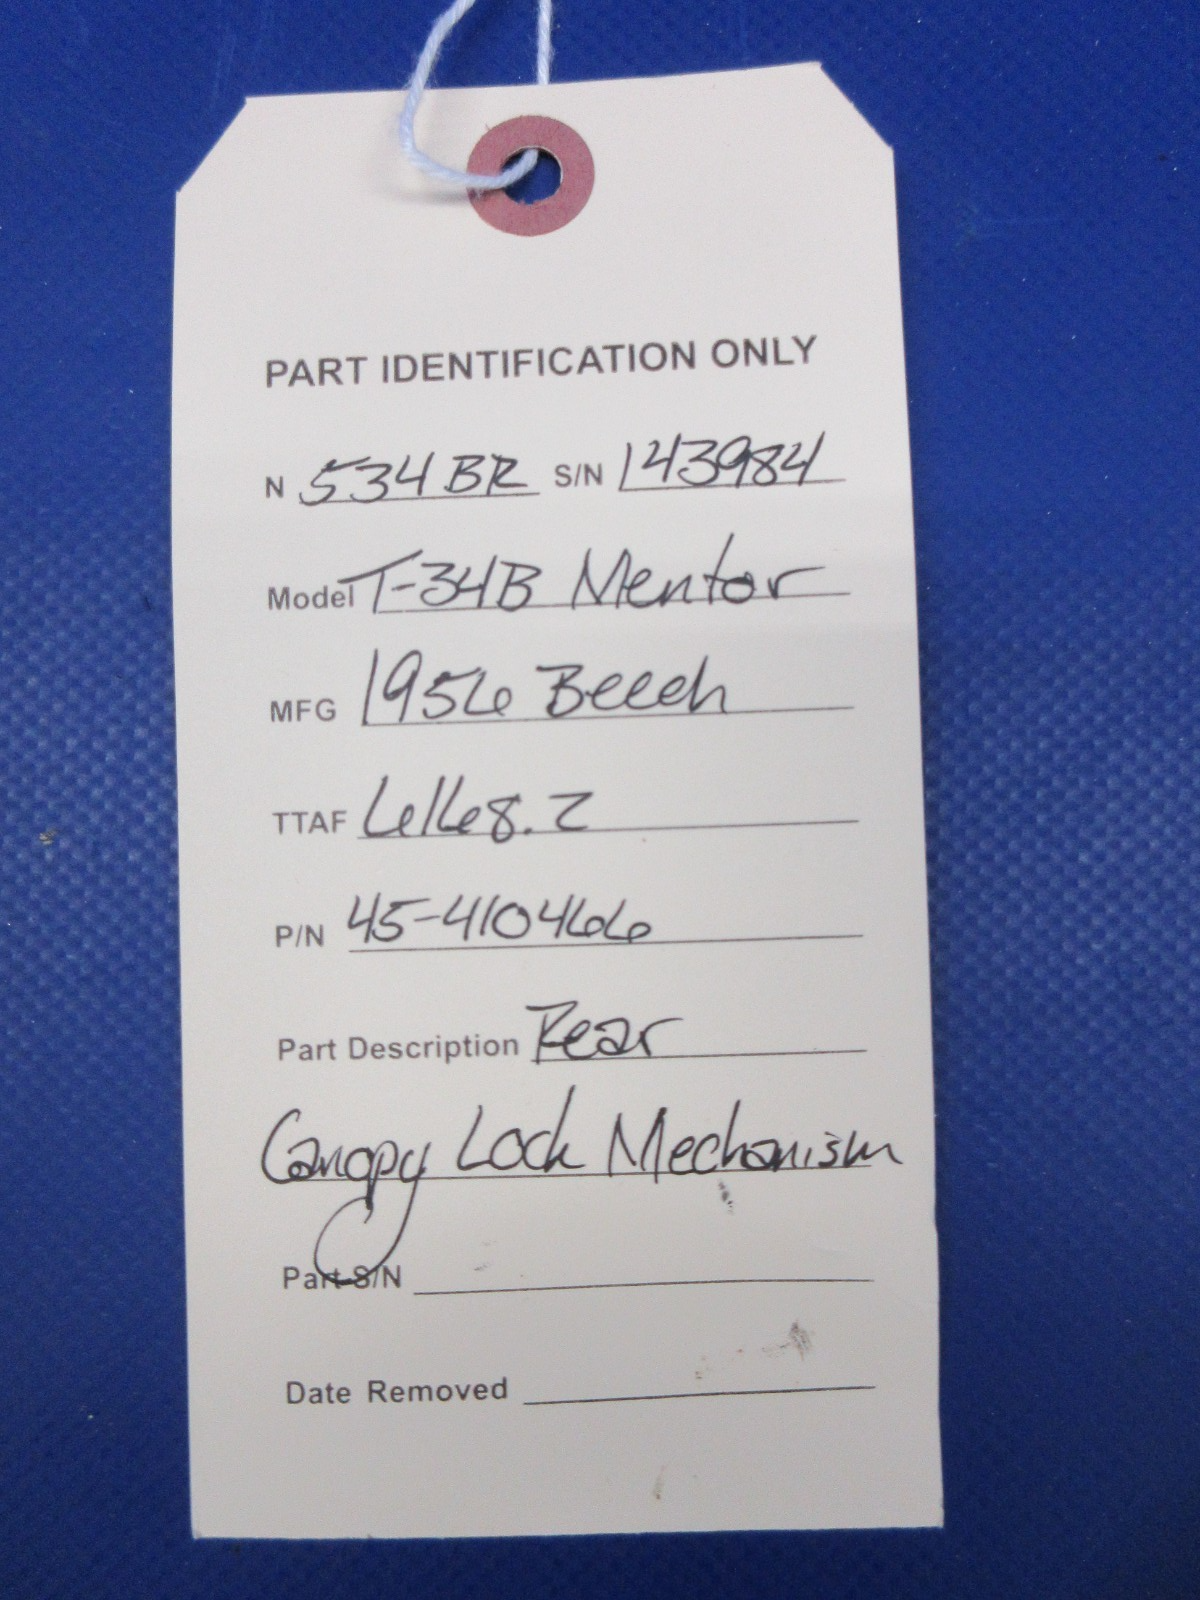 PART IDENTIFICATION ONLY
N 534BR S/N 143984
Model T-34B Mentor
MFG 1956 Beech
TTAF 6168.2
P/N 45-410466
Part Description Rear
Canopy Lock Mechanism
Part S/N
Date Removed